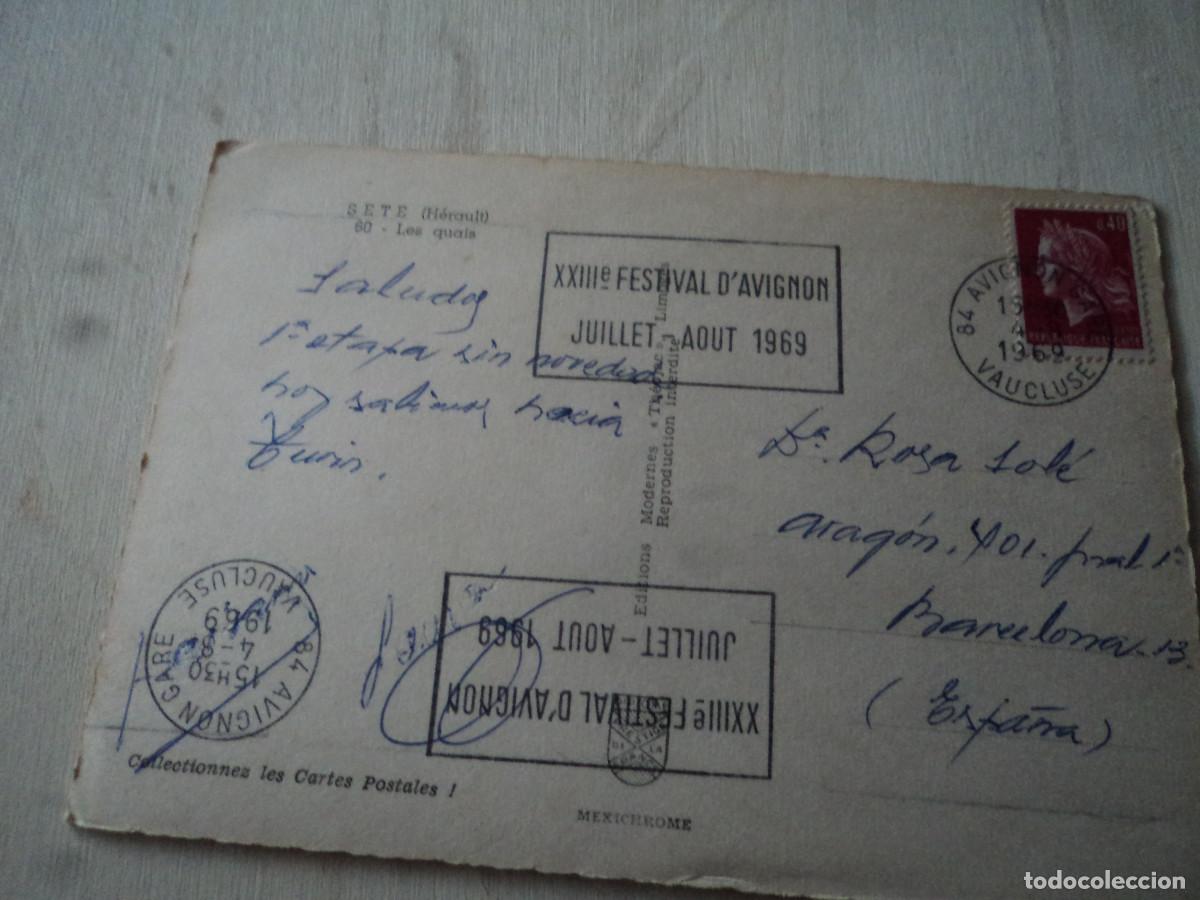 SETE (Hérault)
60 - Les quais
Saludos
1ª etapa sin novedad
hoy salimos hacia
Turin.
XXIIIe FESTIVAL D'AVIGNON
JUILLET - AOUT 1969
0,40
84 AVIGNON
1969
VAUCLUSE
Editions Modernes « Théojac » Limoges
Reproduction interdite
Dª. Rosa Solé
Aragón, 401. pral 1ª
Barcelona-13
(España)
84 AVIGNON GARE
15H30
4-8
1969
VAUCLUSE
XXIIIe FESTIVAL D'AVIGNON
JUILLET - AOUT 1969
Collectionnez les Cartes Postales !
MEXICHROME
todocoleccion